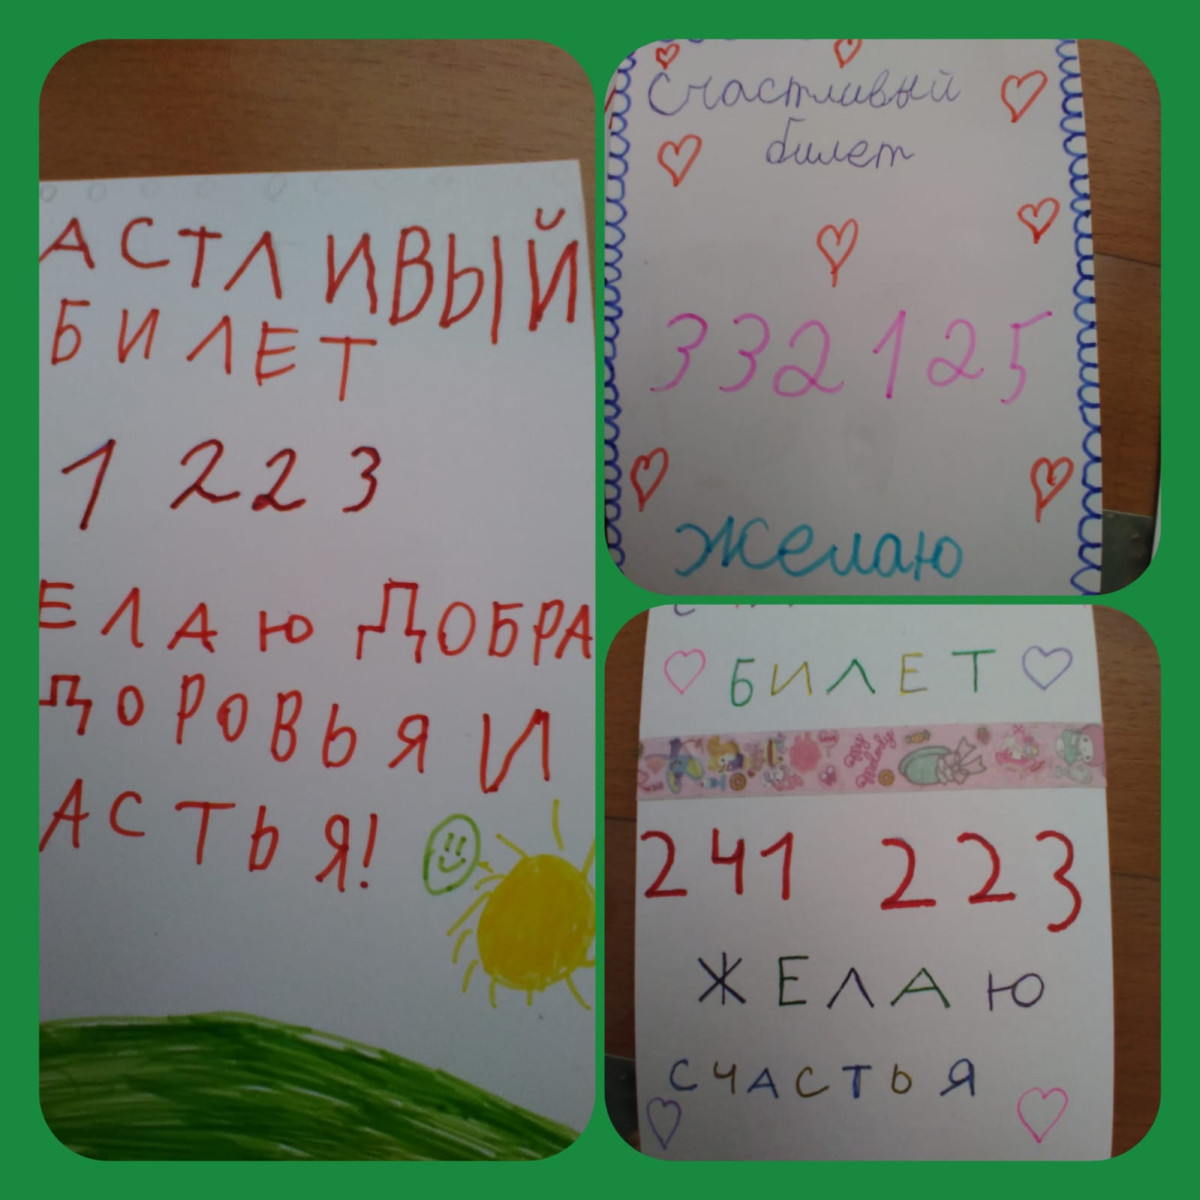 АСТЛИВЫЙ
БИЛЕТ
1 223
ЕЛАЮ ДОБРА
ДОРОВЬЯ И
АСТЬЯ!
Счастливый
билет
332125
Желаю
БИЛЕТ
My Melody
241 223
ЖЕЛАЮ
СЧАСТЬЯ